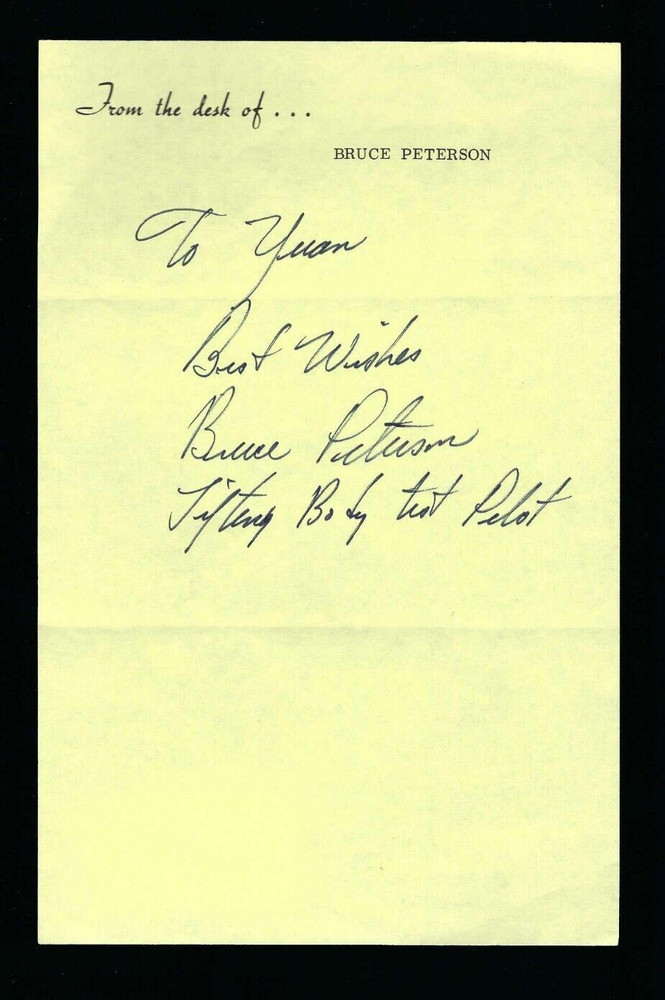 From the desk of . . .
BRUCE PETERSON
To Yuan
Best Wishes
Bruce Peterson
Lifting Body test Pilot